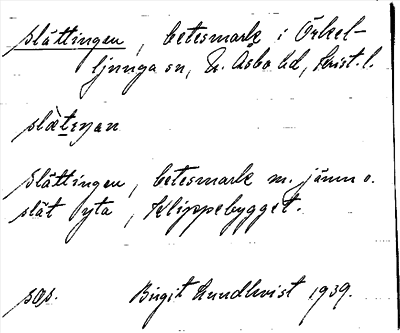 slättingen, betesmark i Örkel-
ljunga sn, N. Åsbo hd, Krist. l.
slätt
Slättingen, betesmark m. jämn o.
slät yta, Klippebygget.
sas. Birgit Lundkvist 1939.